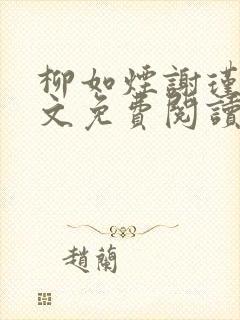 柳如煙謝瑾
文免費閱讀
趙蘭